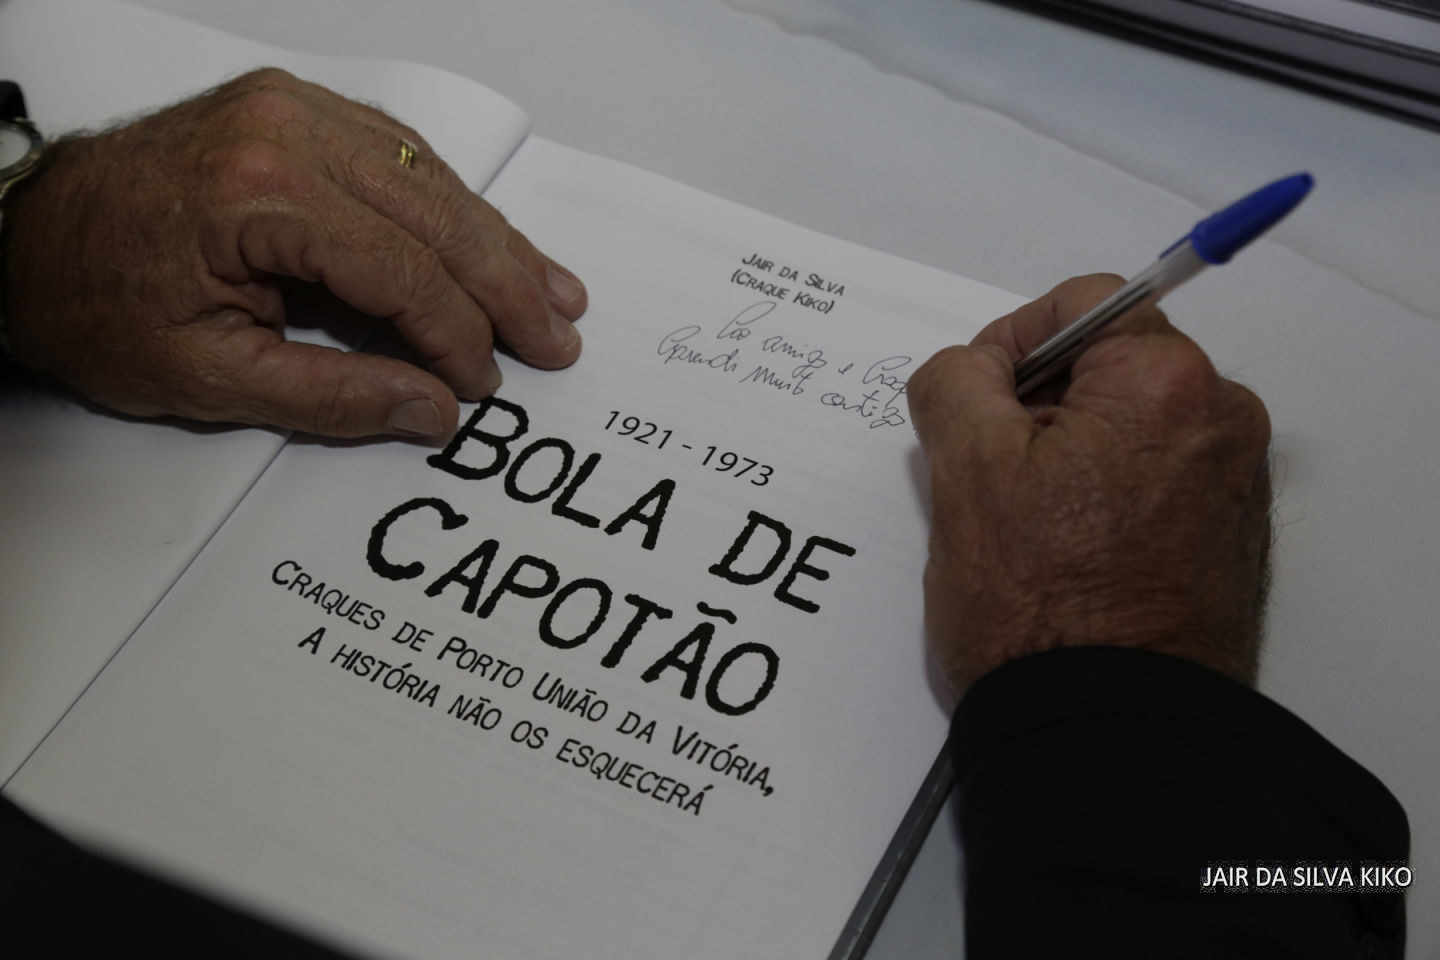 JAIR DA SILVA
(CRAQUE KIKO)
amigo e
Aprendi muito contigo
1921 - 1973
BOLA DE
CAPOTÃO
CRAQUES DE PORTO UNIÃO DA VITÓRIA,
A HISTÓRIA NÃO OS ESQUECERÁ
JAIR DA SILVA KIKO